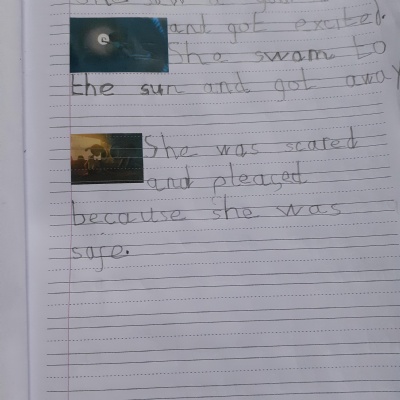 ant got excited.
She swam to
the sun and got away
She was scared
and pleased
because she was
safe.